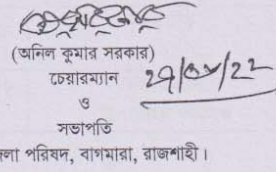 (অনিল কুমার সরকার)
চেয়ারম্যান
ও
সভাপতি
পরিষদ, বাগমারা, রাজশাহী।